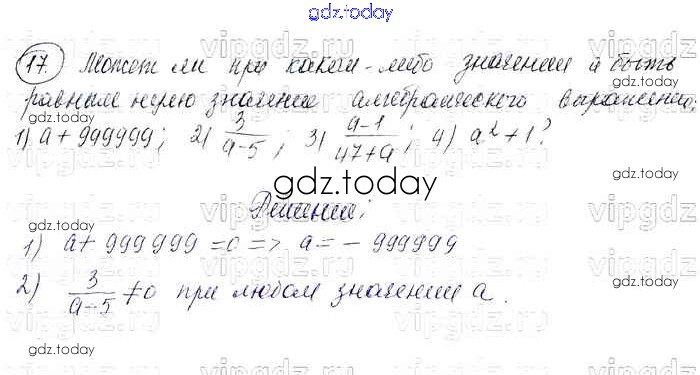 gdz.today
17. Может ли при каком-либо значении a быть
равным нулю значение алгебраического выражения:
1) a + 999999; 2) 3/(a-5); 3) (a-1)/(47+a); 4) a² + 1?
gdz.today
Решение:
1) a + 999999 = 0 => a = - 999999
2) 3/(a-5) ≠ 0 при любом значении a.
gdz.today
gdz.today
gdz.today
gdz.today